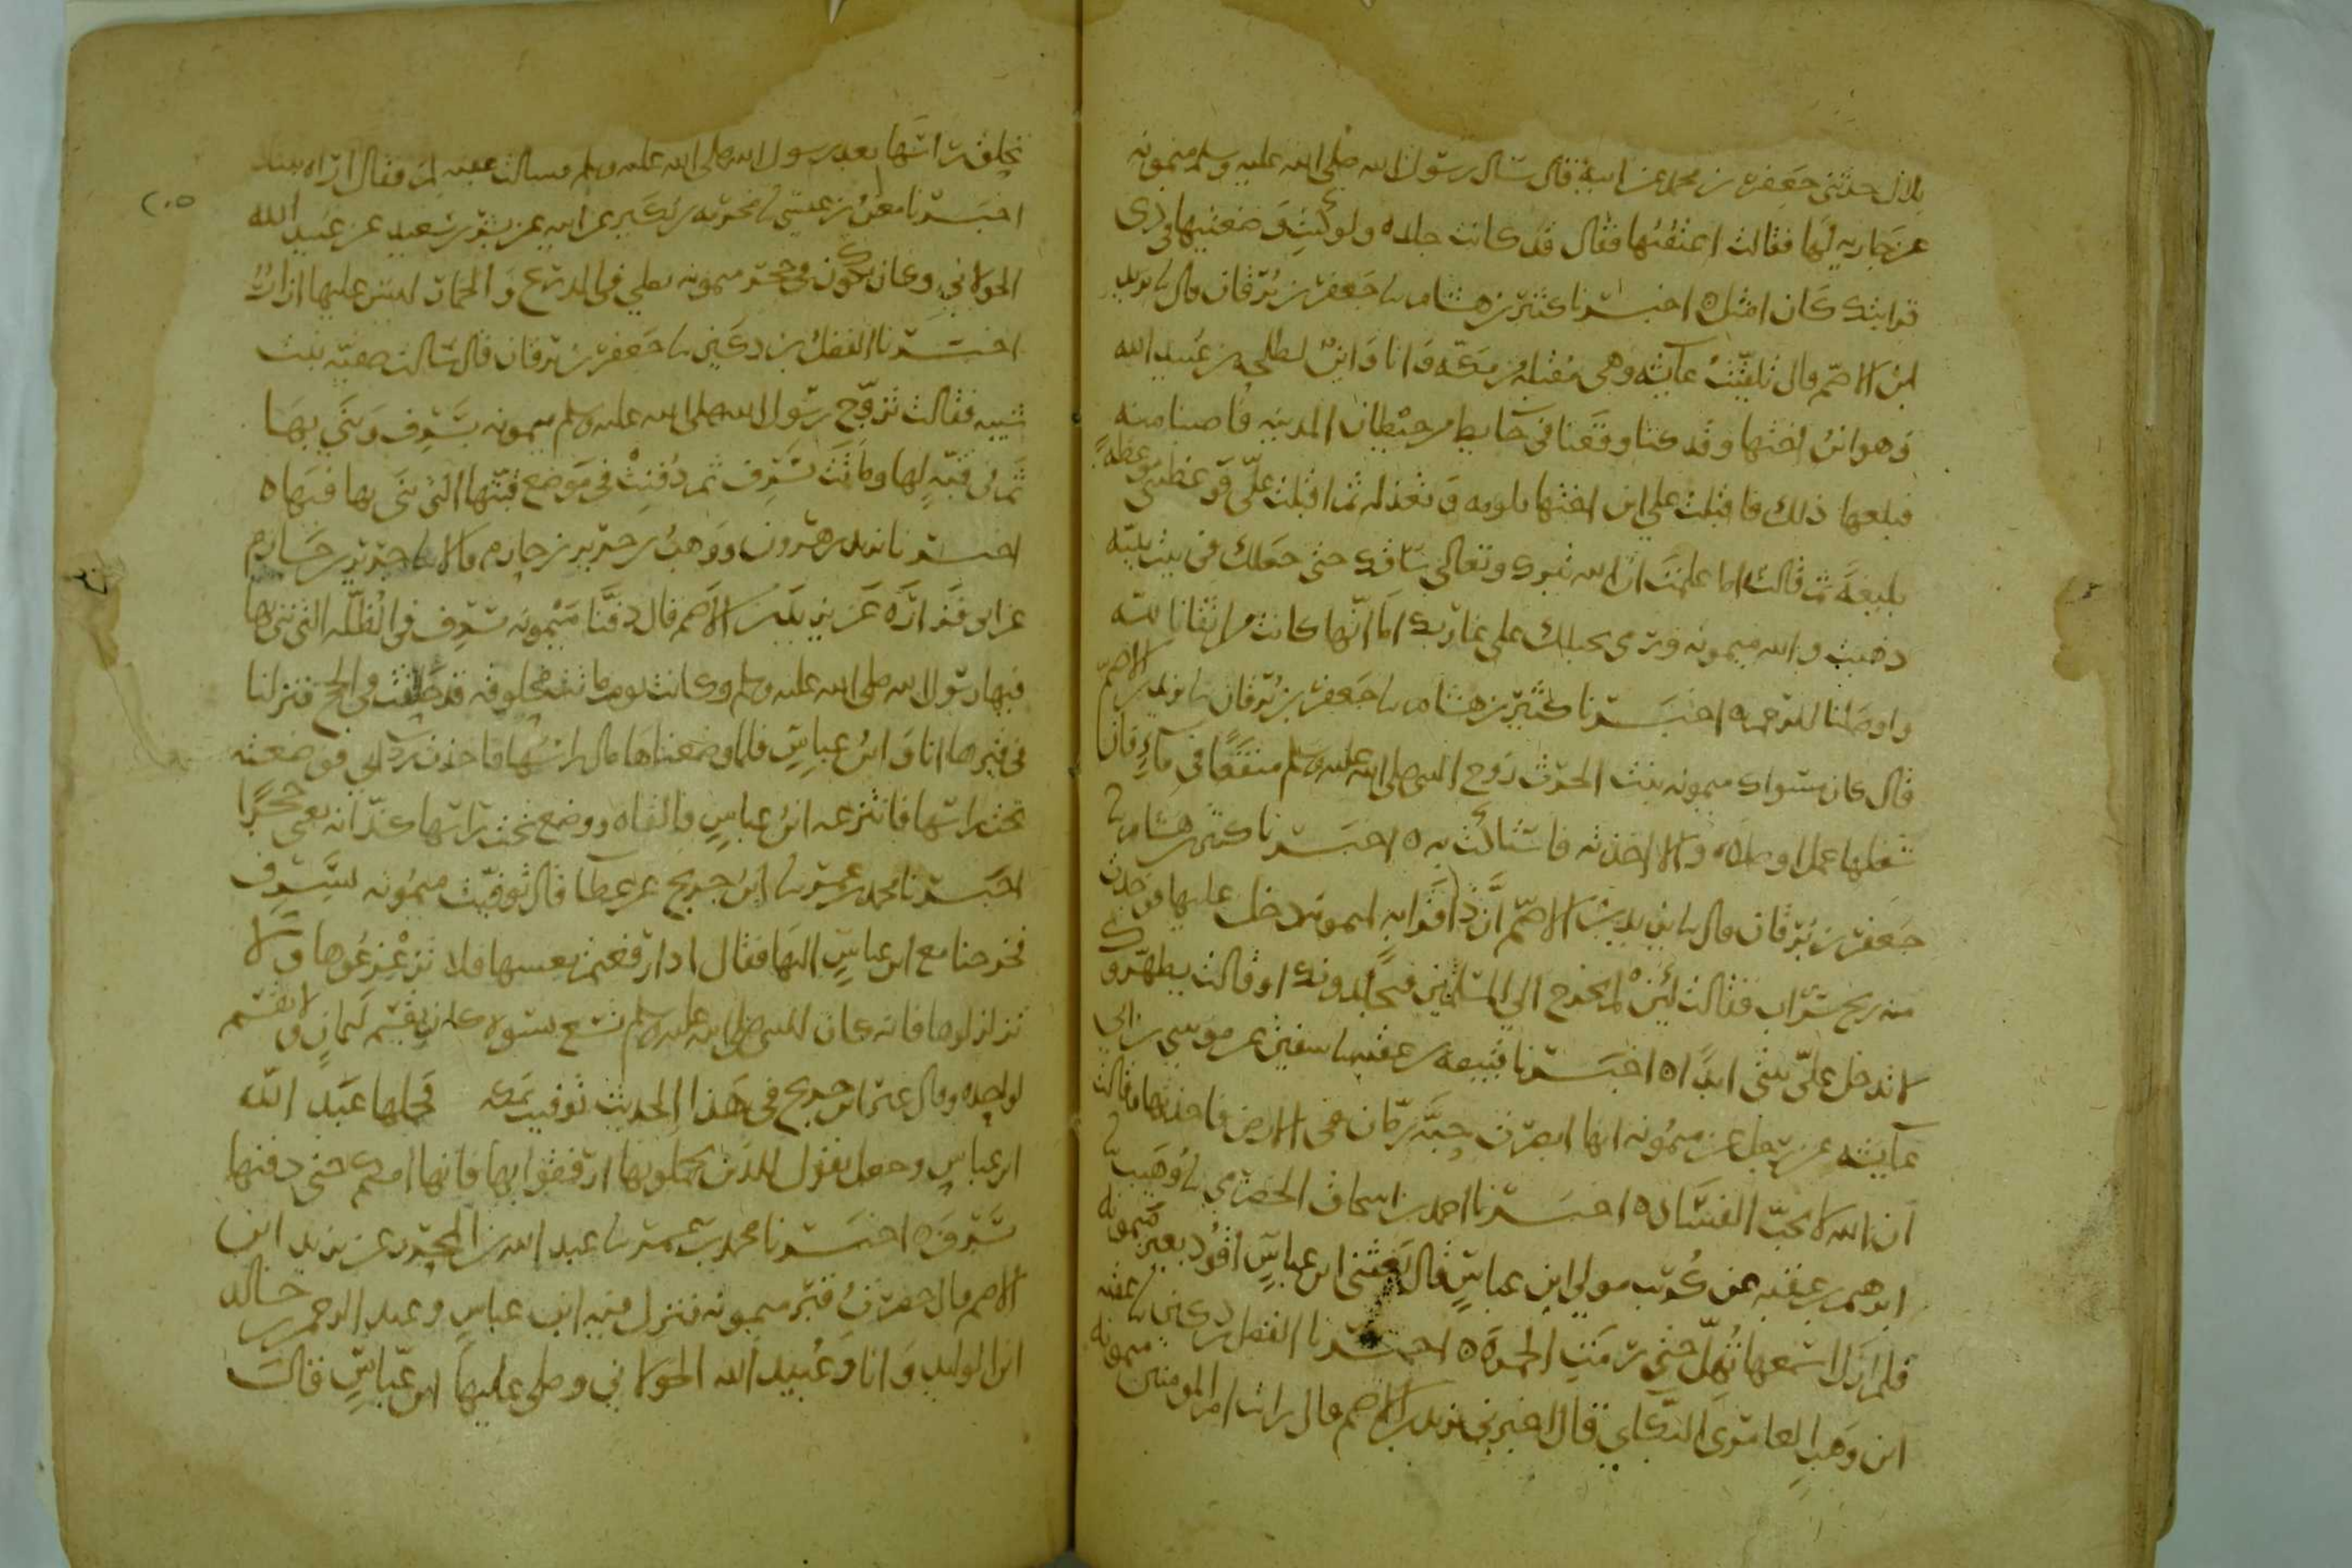 بلال حدثني جعفر بن محمد عن ابيه قال سال رسول الله صلى الله عليه وسلم ميمونه
عن جاريه لها فقالت اعتقتها فقال قد كانت جلده ولو كنت وضعتيها في ذي
قرابتك كان امثل ه اخبرنا كثير بن هشام نا جعفر بن برقان قال نا يزيد
ابن الاصم قال تلقيت عايشه وهي مقبله من مكه وانا وابن لطلحه بن عبيد الله
وهو ابن اختها وقد كنا وقعنا في حايط من حيطان المدينه فاصبنا منه
فبلغها ذلك فاقبلت على ابن اختها تلومه وتعذله ثم اقبلت علي فوعظتني موعظه
بليغه ثم قالت اما علمت ان الله تبرك وتعالى ساقك حتى جعلك في بيت نبيه
ذهبت والله ميمونه ورمي بحبلك على غاربك اما انها كانت من اتقانا لله
واوصلنا للرحم ه اخبرنا كثير بن هشام نا جعفر بن برقان نا يزيد بن الاصم
قال كان سواك ميمونه بنت الحرث زوج النبي صلى الله عليه وسلم منقعا في ماء فان
شغلها عمل او صلاه والا اخذته فاستاكت به ه اخبرنا كثير بن هشام نا
جعفر بن برقان قال نا يزيد بن الاصم ان ذا قرابه لميمونه دخل عليها فوجدت
منه ريح شراب فقالت لئن لم تخرج الى المسلمين فيجلدوك او قالت يطهروك
لا تدخل علي بيتي ابدا ه اخبرنا قبيصه بن عقبه نا سفين عن موسى بن ابي
عايشه عن رجل عن ميمونه انها ابصرت حبه رمان في الارض فاخذتها وقالت
ان الله لا يحب الفساد ه اخبرنا احمد بن اسحاق الحضرمي نا وهيب نا
ابرهيم بن عقبه عن كريب مولى ابن عباس قال بعثني ابن عباس اقود بعير ميمونه
فلم ازل اسمعها تهل حتى رمت الجمره ه اخبرنا الفضل بن دكين نا عقبه
ابن وهب العامري البكاي قال اخبرني يزيد بن الاصم قال رايت ام المومنين ميمونه
تحلق راسها بعد رسول الله صلى الله عليه وسلم فسالت عقبه لم فقال اراه تبتل
اخبرنا معن بن عيسى نا مخرمه بن بكير عن ابيه عن بسر بن سعيد عن عبيد الله
الخولاني وكان يكون في حجر ميمونه تصلي في الدرع والخمار ليس عليها ازار
اخبرنا الفضل بن دكين نا جعفر بن برقان قال سالت صفيه بنت
شيبه فقالت تزوج رسول الله صلى الله عليه وسلم ميمونه بسرف وبنى بها
ثم في قبه لها وماتت بسرف ثم دفنت في موضع قبتها التي بنى بها فيها ه
اخبرنا يزيد بن هرون ووهب بن جرير بن حازم قالا نا جرير بن حازم
عن ابي فزاره عن يزيد بن الاصم قال دفنا ميمونه بسرف في الظله التي بنى بها
فيها رسول الله صلى الله عليه وسلم وكانت يوم ماتت محلوقه قد حلقت في الحج فنزلنا
في قبرها انا وابن عباس فلما وضعناها مال راسها فاخذت رداي فوضعته
تحت راسها فانتزعه ابن عباس فالقاه ووضع تحت راسها كذانه يعني حجرا
اخبرنا محمد بن عمر نا ابن جريج عن عطا قال توفيت ميمونه بسرف
فخرجنا مع ابن عباس اليها فقال اذا رفعتم نعشها فلا تزعزعوها ولا
تزلزلوها فانه كان للنبي صلى الله عليه وسلم تسع نسوه كان يقسم لثمان ولا يقسم
لواحده وقال غير ابن جريج في هذا الحديث توفيت بمكه فحملها عبد الله
ابن عباس وجعل يقول للذين يحملونها ارفقوا بها فانها امكم حتى دفنها
بسرف ه اخبرنا محمد بن عمر نا عبد الله بن المحرر عن يزيد ابن
الاصم قال حضرت قبر ميمونه فنزل فيه ابن عباس وعبد الرحمن بن خالد
ابن الوليد وانا وعبيد الله الخولاني وصلى عليها ابن عباس قالت